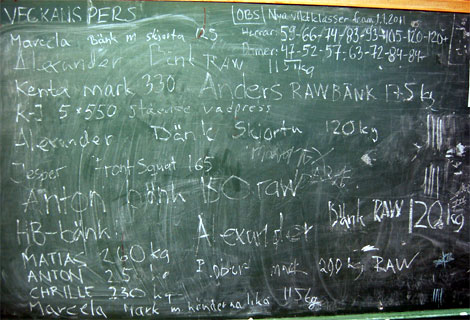 VECKANS PERS
OBS! Nya viktklasser fram 1.1.2011
Herrar: 59-66-74-83-93-105-120-120+
Damer: 47-52-57-63-72-84-84+
Marcela Bänk m skjorta 125
Alexander Bänk RAW 115kg
Kenta mark 330 Anders RAWBÄNK 175 kg
K-J 5*550 stående vadpress
Alexander Bänk Skjorta 120kg
Jesper Front Squat 165
Anton bänk 150 raw
Bänk RAW 120kg
HB-bänk! Alexander
MATIAS 260 kg
mark 200 kg RAW
ANTON
CHRILLE 230 kg
Marcela Mark m händerna lika 115kg